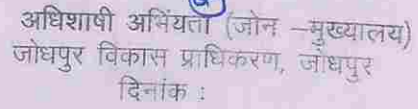 अधिशाषी अभियंता (जोन –मुख्यालय)
जोधपुर विकास प्राधिकरण, जोधपुर
दिनांक :